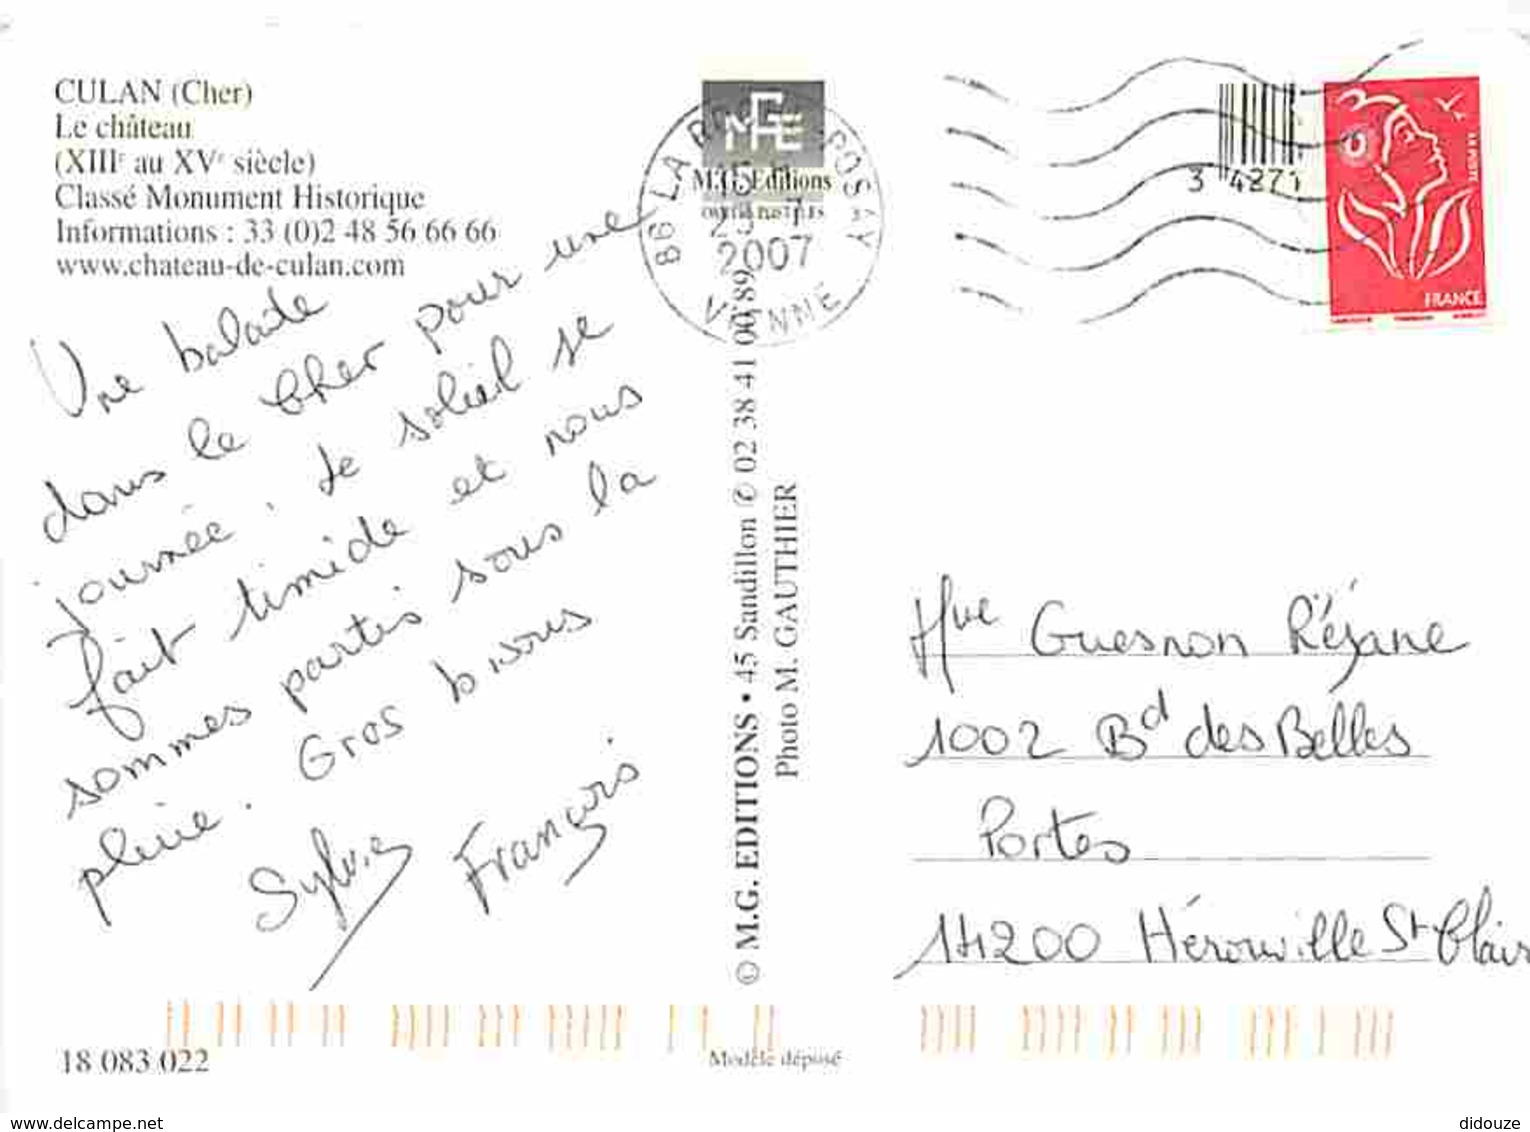 CULAN (Cher)
Le château
(XIIIe au XVe siècle)
Classé Monument Historique
Informations : 33 (0)2 48 56 66 66
www.chateau-de-culan.com
Une balade
dans le Cher pour une
journée. Le soleil se
fait timide et nous
sommes partis sous la
pluie. Gros bisous
Sylvie François
18 083 022
M.G. Editions
86 LA
POSAY
2007
VIENNE
© M.G. EDITIONS • 45 Sandillon ✆ 02 38 41 00 89
Photo M. GAUTHIER
Modèle déposé
3 4271
LA POSTE
FRANCE
Mme Guesnon Réjane
1002 Bd des Belles
Portes
14200 Hérouville St Clair
www.delcampe.net
didouze